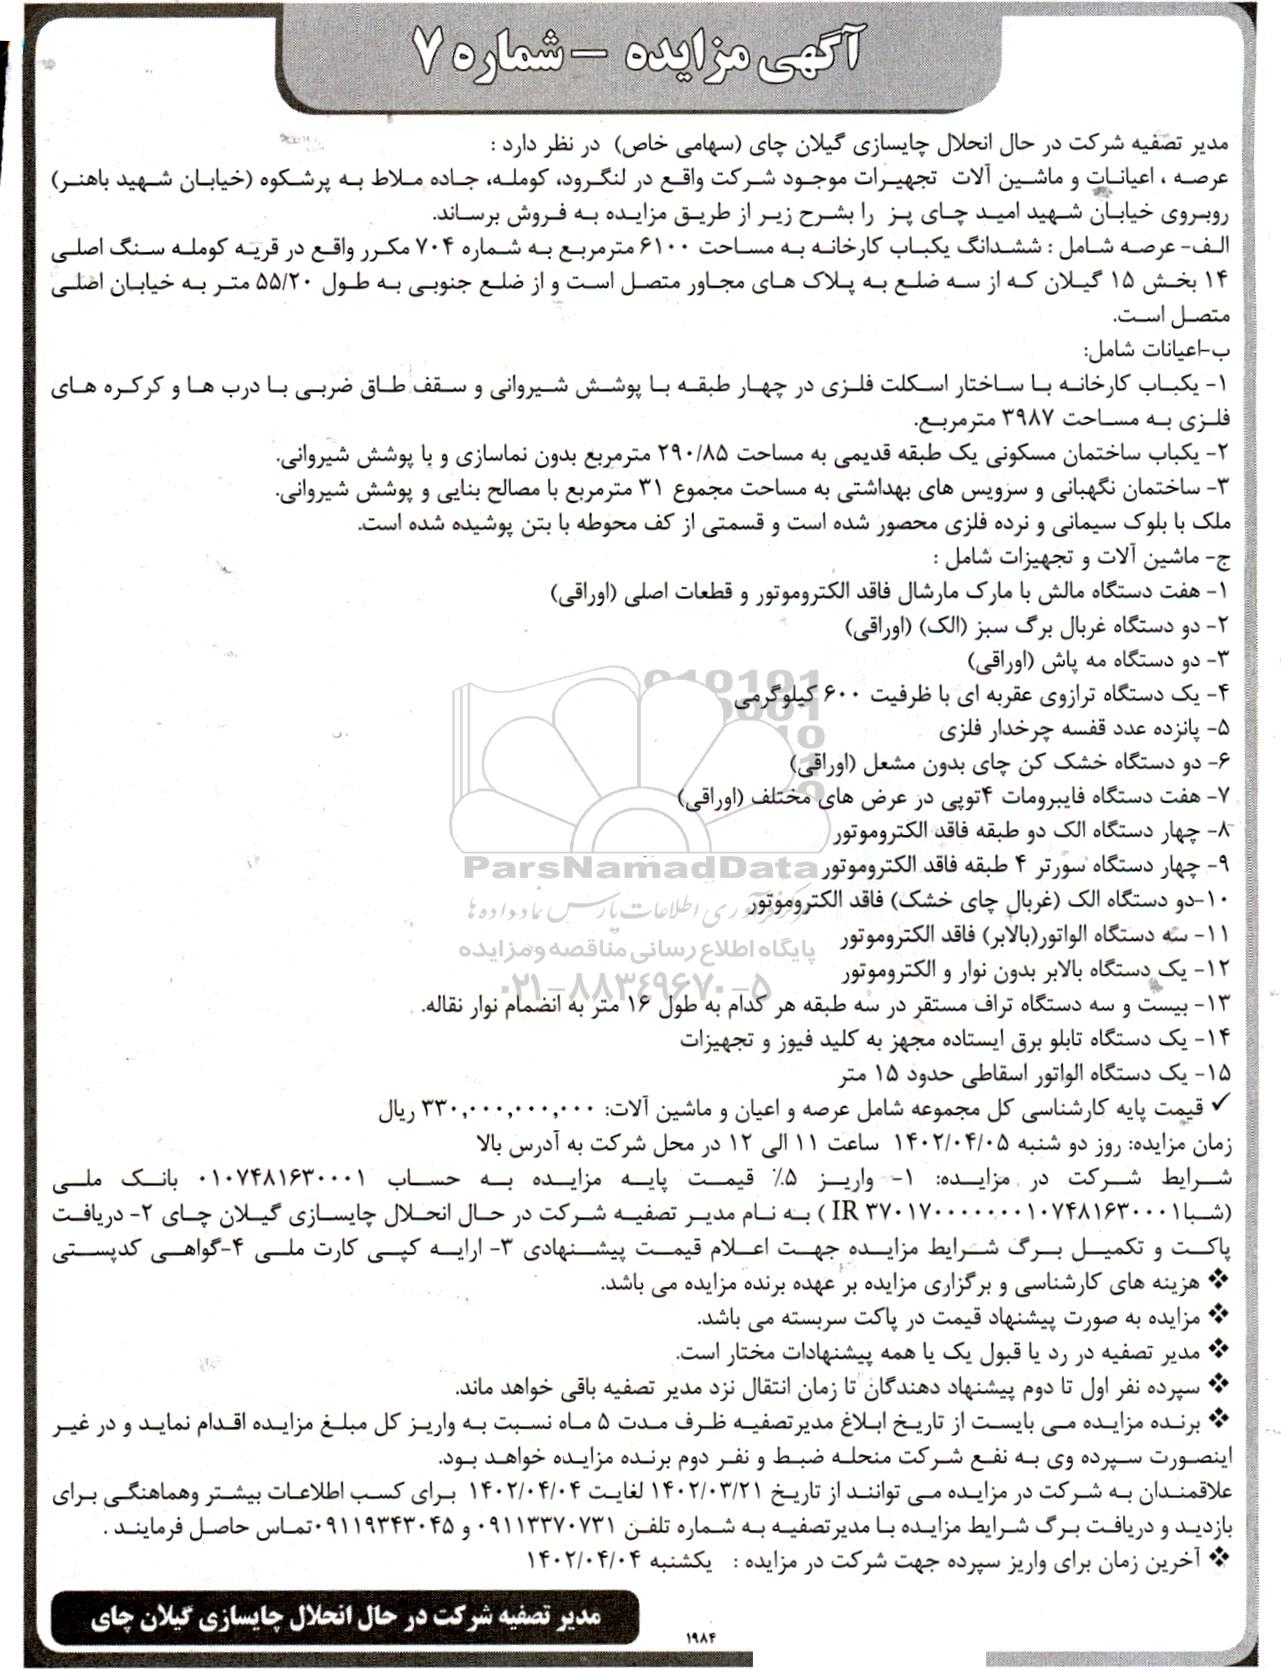 آگهی مزایده - شماره ۷
مدیر تصفیه شرکت در حال انحلال چایسازی گیلان چای (سهامی خاص) در نظر دارد :
عرصه ، اعیانات و ماشین آلات تجهیرات موجود شرکت واقع در لنگرود، کومله، جاده ملاط به پرشکوه (خیابان شهید باهنر)
روبروی خیابان شهید امید چای پز را بشرح زیر از طریق مزایده به فروش برساند.
الف- عرصه شامل : ششدانگ یکباب کارخانه به مساحت ۶۱۰۰ مترمربع به شماره ۷۰۴ مکرر واقع در قریه کومله سنگ اصلی
۱۴ بخش ۱۵ گیلان که از سه ضلع به پلاک های مجاور متصل است و از ضلع جنوبی به طول ۵۵/۲۰ متر به خیابان اصلی
متصل است.
ب-اعیانات شامل:
۱- یکباب کارخانه با ساختار اسکلت فلزی در چهار طبقه با پوشش شیروانی و سقف طاق ضربی با درب ها و کرکره های
فلزی به مساحت ۳۹۸۷ مترمربع.
۲- یکباب ساختمان مسکونی یک طبقه قدیمی به مساحت ۲۹۰/۸۵ مترمربع بدون نماسازی و با پوشش شیروانی.
۳- ساختمان نگهبانی و سرویس های بهداشتی به مساحت مجموع ۳۱ مترمربع با مصالح بنایی و پوشش شیروانی.
ملک با بلوک سیمانی و نرده فلزی محصور شده است و قسمتی از کف محوطه با بتن پوشیده شده است.
ج- ماشین آلات و تجهیزات شامل :
۱- هفت دستگاه مالش با مارک مارشال فاقد الکتروموتور و قطعات اصلی (اوراقی)
۲- دو دستگاه غربال برگ سبز (الک) (اوراقی)
۳- دو دستگاه مه پاش (اوراقی)
۴- یک دستگاه ترازوی عقربه ای با ظرفیت ۶۰۰ کیلوگرمی
۵- پانزده عدد قفسه چرخدار فلزی
۶- دو دستگاه خشک کن چای بدون مشعل (اوراقی)
۷- هفت دستگاه فایبرومات ۴توپی در عرض های مختلف (اوراقی)
۸- چهار دستگاه الک دو طبقه فاقد الکتروموتور
ParsNamadData
۹- چهار دستگاه سورتر ۴ طبقه فاقد الکتروموتور
۱۰-دو دستگاه الک (غربال چای خشک) فاقد الکتروموتور
مرکز فرآوری اطلاعات پارس نماد داده ها
۱۱- سه دستگاه الواتور(بالابر) فاقد الکتروموتور
پایگاه اطلاع رسانی مناقصه و مزایده
۱۲- یک دستگاه بالابر بدون نوار و الکتروموتور
۰۲۱-۸۸۳۴۹۶۷۰-۵
۱۳- بیست و سه دستگاه تراف مستقر در سه طبقه هر کدام به طول ۱۶ متر به انضمام نوار نقاله.
۱۴- یک دستگاه تابلو برق ایستاده مجهز به کلید فیوز و تجهیزات
۱۵- یک دستگاه الواتور اسقاطی حدود ۱۵ متر
✓ قیمت پایه کارشناسی کل مجموعه شامل عرصه و اعیان و ماشین آلات: ۳۳۰,۰۰۰,۰۰۰,۰۰۰ ریال
زمان مزایده: روز دو شنبه ۱۴۰۲/۰۴/۰۵ ساعت ۱۱ الی ۱۲ در محل شرکت به آدرس بالا
شرایط شرکت در مزایده: ۱- واریز ۵٪ قیمت پایه مزایده به حساب ۰۱۰۷۴۸۱۶۳۰۰۰۱ بانک ملی
(شبا IR ۳۷۰۱۷۰۰۰۰۰۰۰۱۰۷۴۸۱۶۳۰۰۰۱ ) به نام مدیر تصفیه شرکت در حال انحلال چایسازی گیلان چای ۲- دریافت
پاکت و تکمیل برگ شرایط مزایده جهت اعلام قیمت پیشنهادی ۳- ارایه کپی کارت ملی ۴-گواهی کدپستی
❖ هزینه های کارشناسی و برگزاری مزایده بر عهده برنده مزایده می باشد.
❖ مزایده به صورت پیشنهاد قیمت در پاکت سربسته می باشد.
❖ مدیر تصفیه در رد یا قبول یک یا همه پیشنهادات مختار است.
❖ سپرده نفر اول تا دوم پیشنهاد دهندگان تا زمان انتقال نزد مدیر تصفیه باقی خواهد ماند.
❖ برنده مزایده می بایست از تاریخ ابلاغ مدیرتصفیه ظرف مدت ۵ ماه نسبت به واریز کل مبلغ مزایده اقدام نماید و در غیر
اینصورت سپرده وی به نفع شرکت منحله ضبط و نفر دوم برنده مزایده خواهد بود.
علاقمندان به شرکت در مزایده می توانند از تاریخ ۱۴۰۲/۰۳/۲۱ لغایت ۱۴۰۲/۰۴/۰۴ برای کسب اطلاعات بیشتر وهماهنگی برای
بازدید و دریافت برگ شرایط مزایده با مدیرتصفیه به شماره تلفن ۰۹۱۱۳۳۷۰۷۳۱ و ۰۹۱۱۹۳۴۳۰۴۵تماس حاصل فرمایند .
❖ آخرین زمان برای واریز سپرده جهت شرکت در مزایده : یکشنبه ۱۴۰۲/۰۴/۰۴
مدیر تصفیه شرکت در حال انحلال چایسازی گیلان چای
۱۹۸۴